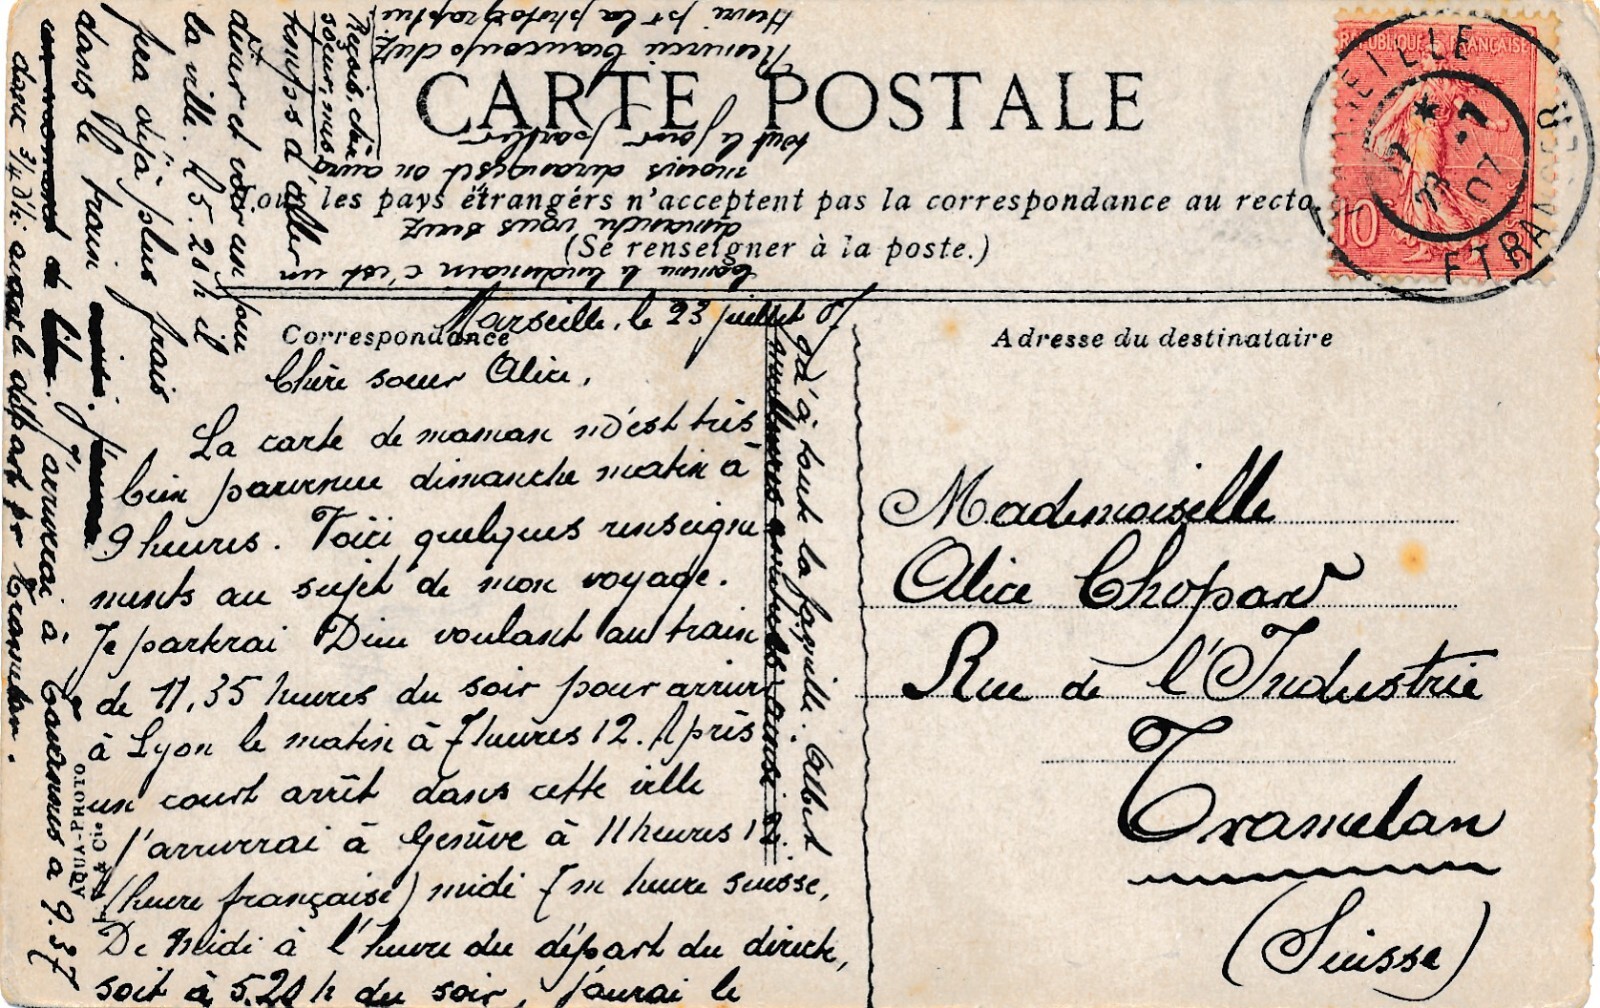 CARTE POSTALE
Tous les pays étrangers n'acceptent pas la correspondance au recto.
(Se renseigner à la poste.)
RÉPUBLIQUE FRANÇAISE
10
MARSEILLE
ETRANGER
23 -7
07
Correspondance
Adresse du destinataire
Marseille, le 23 juillet 07
Chère soeur Alice,
La carte de maman m'est très
bien parvenue dimanche matin à
9 heures. Voici quelques renseigne
ments au sujet de mon voyage.
Je partirai Dieu voulant au train
de 11,35 heures du soir pour arriver
à Lyon le matin à 7 heures 12. Après
un court arrêt dans cette ville
j'arriverai à Genève à 11 heures 12
(heure française) midi 7 m heure suisse,
De midi à l'heure du départ du direct,
soit à 5.20 h du soir, j'aurai le
temps d'aller
dîner et voir un peu
la ville. A 5.20 h il
fera déjà plus frais
dans le train.
j'arriverai à Tavannes à 9.37
donc 3/4 d'h. avant le départ pr Tramelan.
Comme le lendemain c'est un
dimanche vous serez
moins dérangés et on aura
tout le jour
Remerciez beaucoup chez
Henri pr la photographie
Reçois, chère
soeur, mes
meilleures amitiés ainsi
qu'à toute la famille. Albert
Mademoiselle
Alice Chopard
Rue de l'Industrie
Tramelan
(Suisse)
AQUA-PHOTO
& Cie